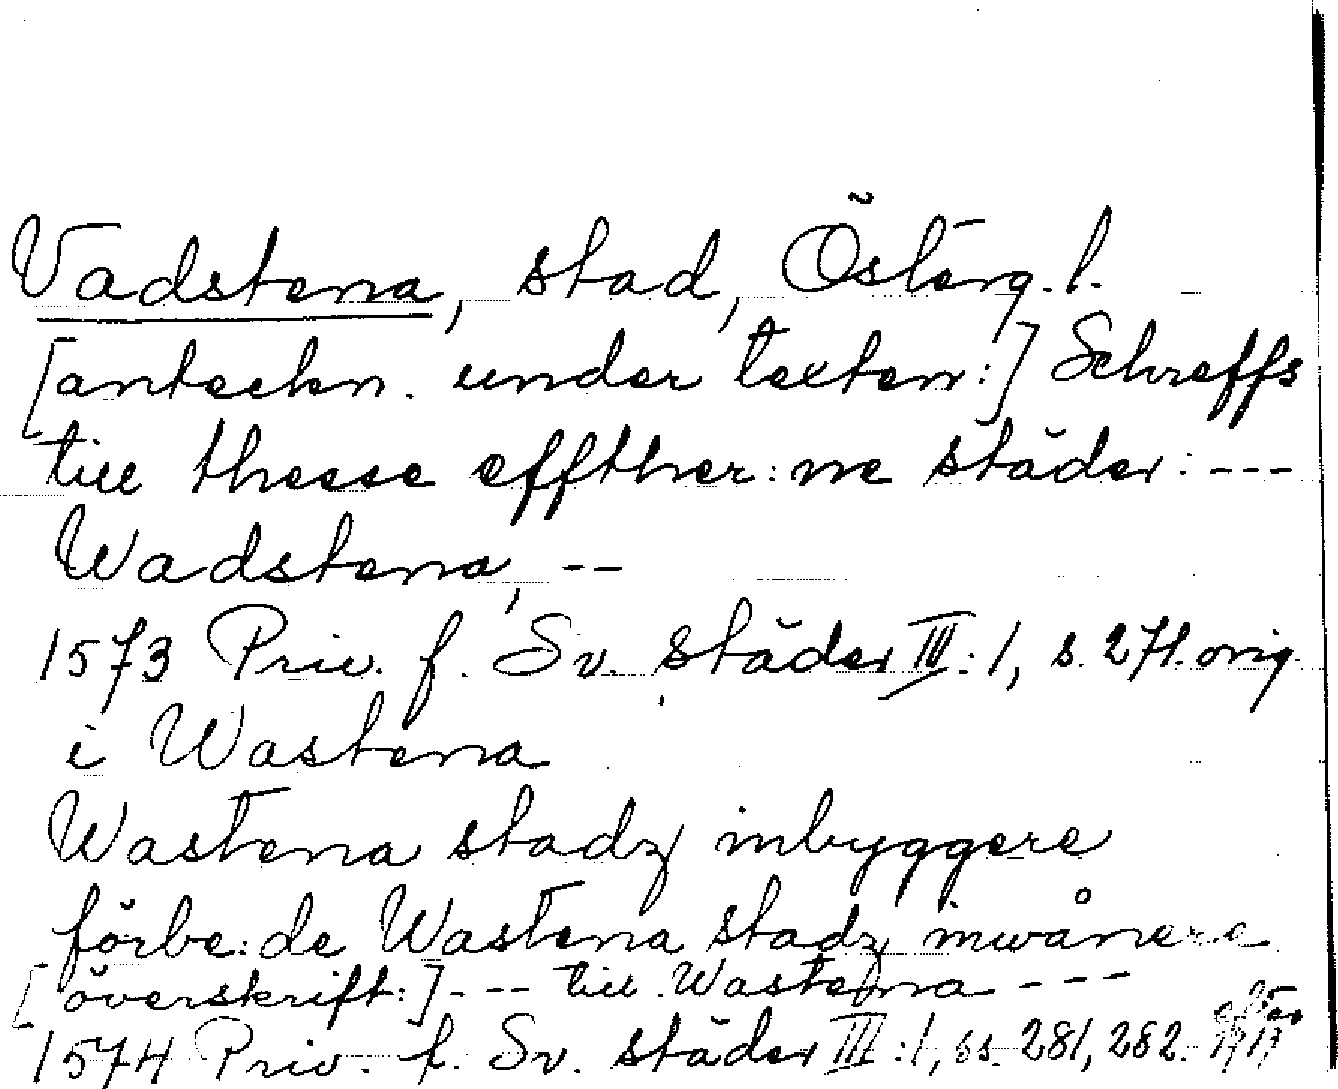 Vadstena, stad, Österg. l.
[anteckn. under texten:] Schreffs
till thesse effther:ne städer: ---
Wadstena, --
1573 Priv. f. Sv. städer III:1, s. 271. orig.
i Wastena
Wastena stadz inbyggere
förbe:de Wastena stadz inwånere
[överskrift:] --- till Wastena ---
1574 Priv. f. Sv. städer III:1, ss. 281, 282.